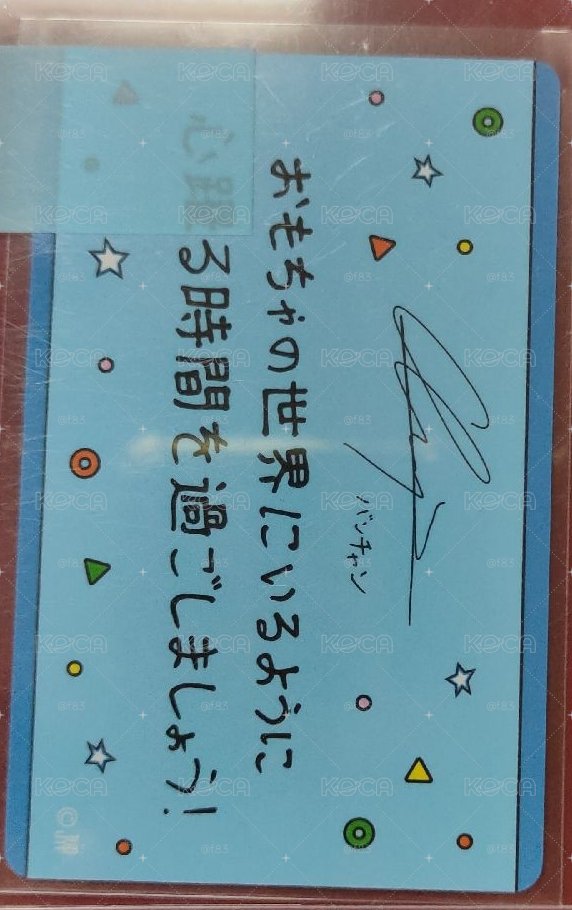 バンチャン
おもちゃの世界にいるように
心 る時間を過ごしましょう!
KOCA
@f83